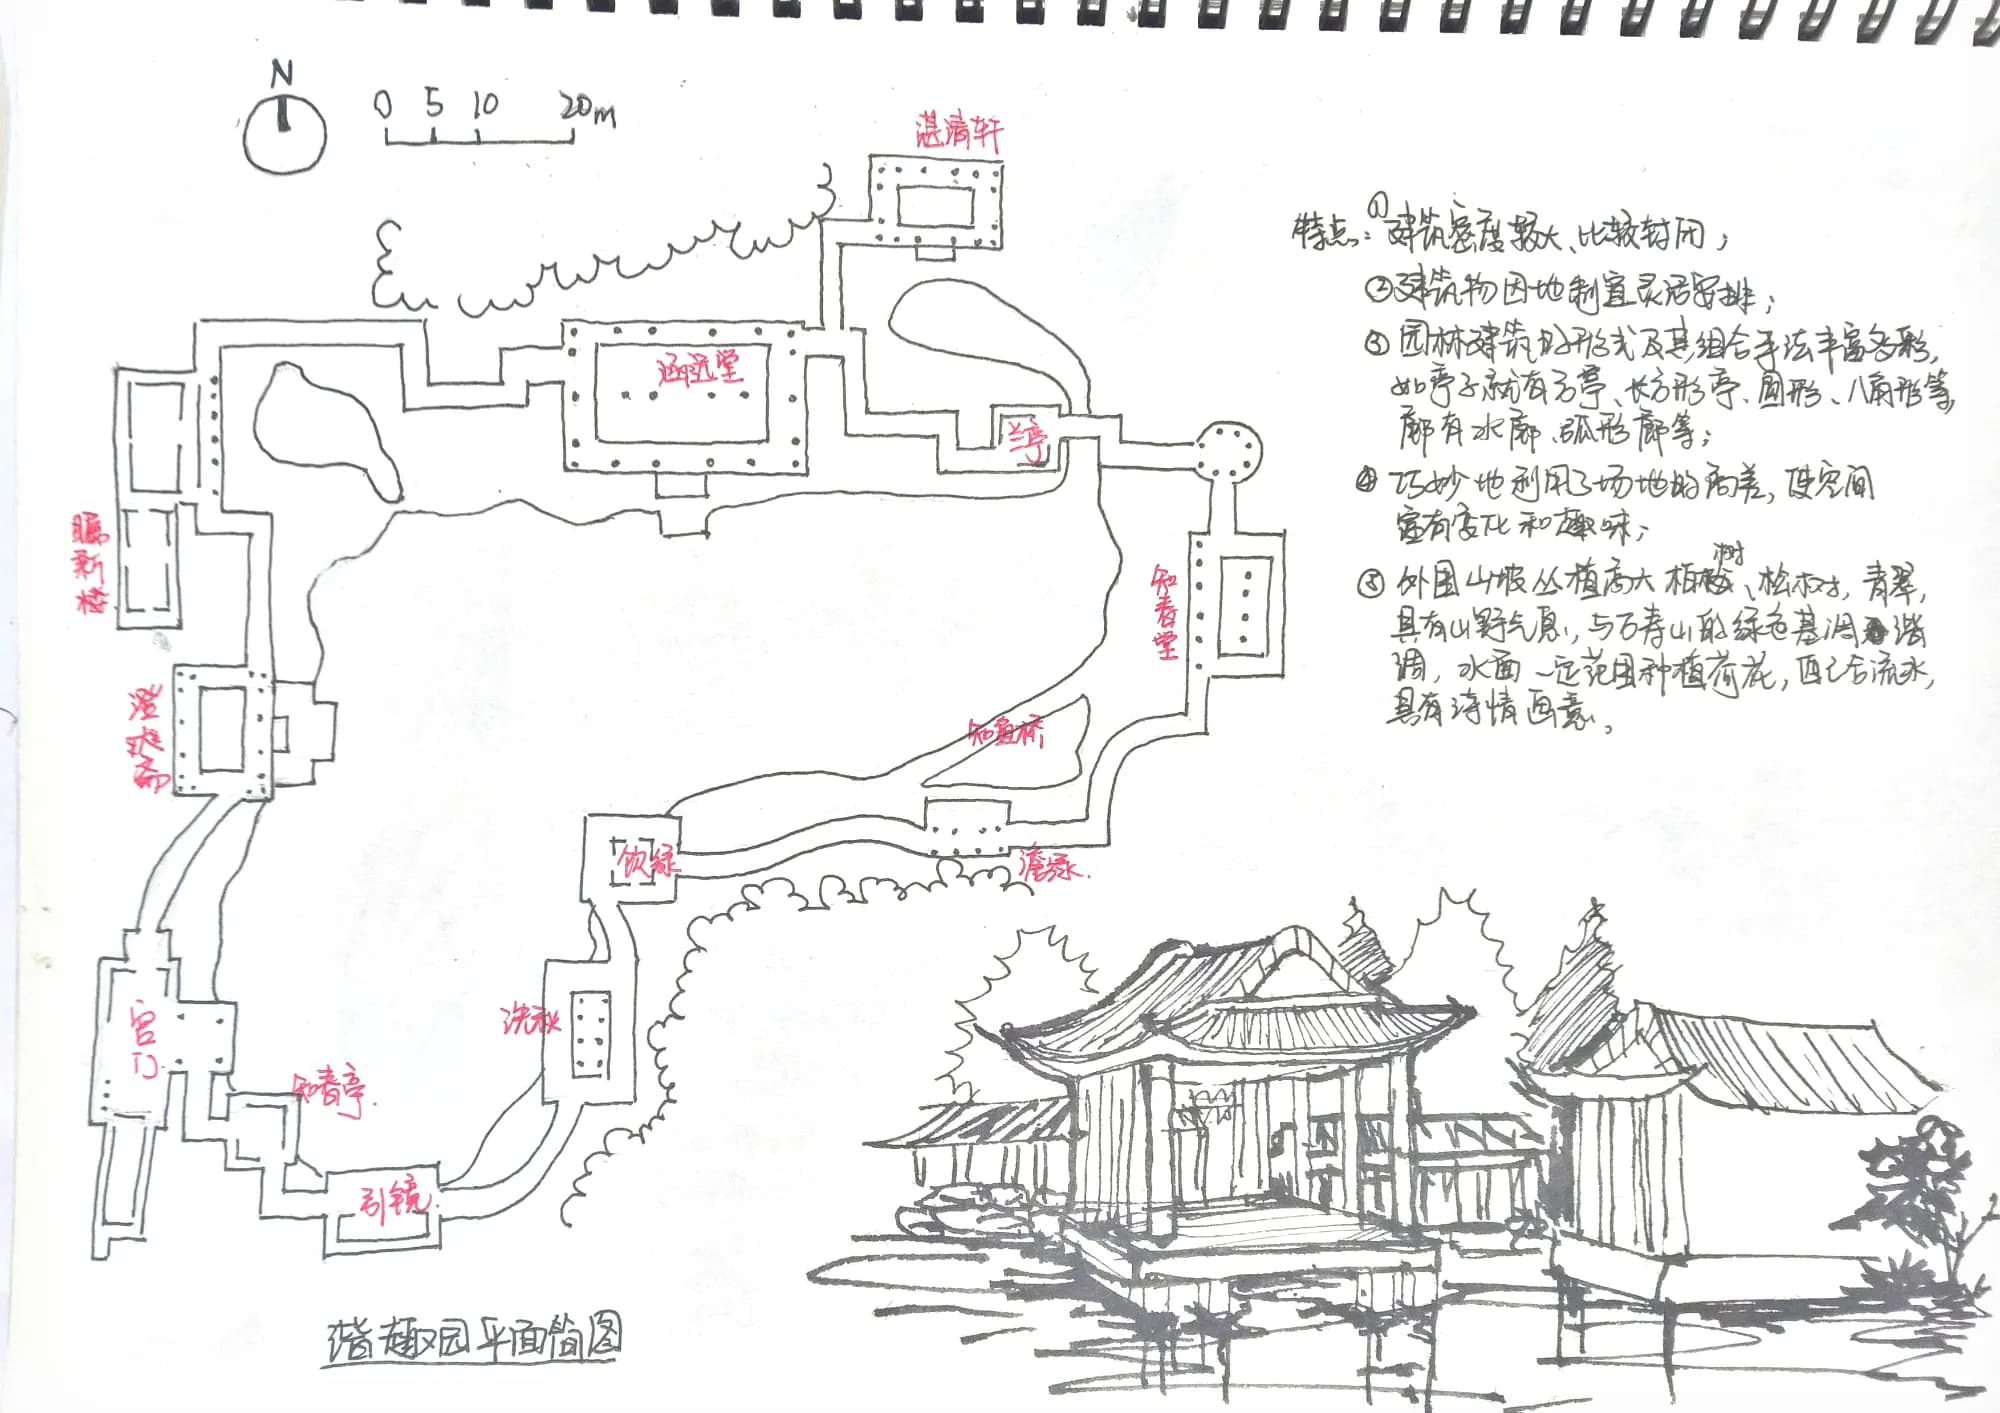 N
0 5 10 20m
湛清轩
涵远堂
兰亭
瞩新楼
知春堂
澄爽斋
知鱼桥
饮绿
澹绿.
宫门
洗秋
知春亭.
引镜.
谐趣园平面简图
特点：①建筑密度较大、比较封闭；
②建筑物因地制宜灵活安排；
③园林建筑的形式及其组合手法丰富多彩，
如亭子就有方亭、长方形亭、圆形、八角形等，
廊有水廊、弧形廊等；
④巧妙地利用了场地的高差，使空间
富有变化和趣味；
⑤外围山坡丛植高大柏树、松树，青翠，
具有山野气息，与万寿山的绿色基调谐
调，水面一定范围种植荷花，配合流水，
具有诗情画意。